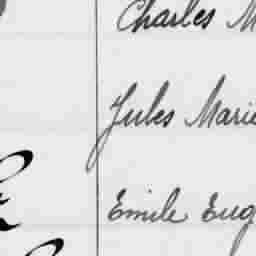 Charles M
Jules Marie
Emile Eug